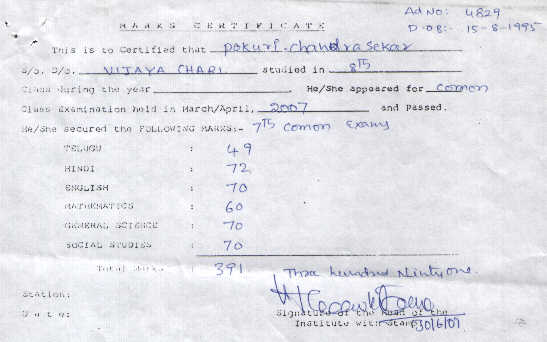 Ad No: 4829
MARKS CERTIFICATE
D.OB:- 15-8-1995
This is to Certified that pokuri. chandra sekar
S/o. D/o. VIJAYA CHARI studied in 8th
Class during the year He/She appeared for comon
Class Examination held in March/April, 2007 and Passed.
He/She secured the FOLLOWING MARKS:- 7th comon Exams
TELUGU : 49
HINDI : 72
ENGLISH : 70
MATHEMATICS : 60
GENERAL SCIENCE : 70
SOCIAL STUDIES : 70
Total Marks : 391 Three hundred Ninty one.
Station:
Signature of the Head of the
Date: Institute with Stamp 30/6/07